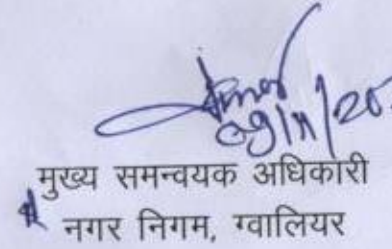 09/11/20
मुख्य समन्वयक अधिकारी
नगर निगम, ग्वालियर